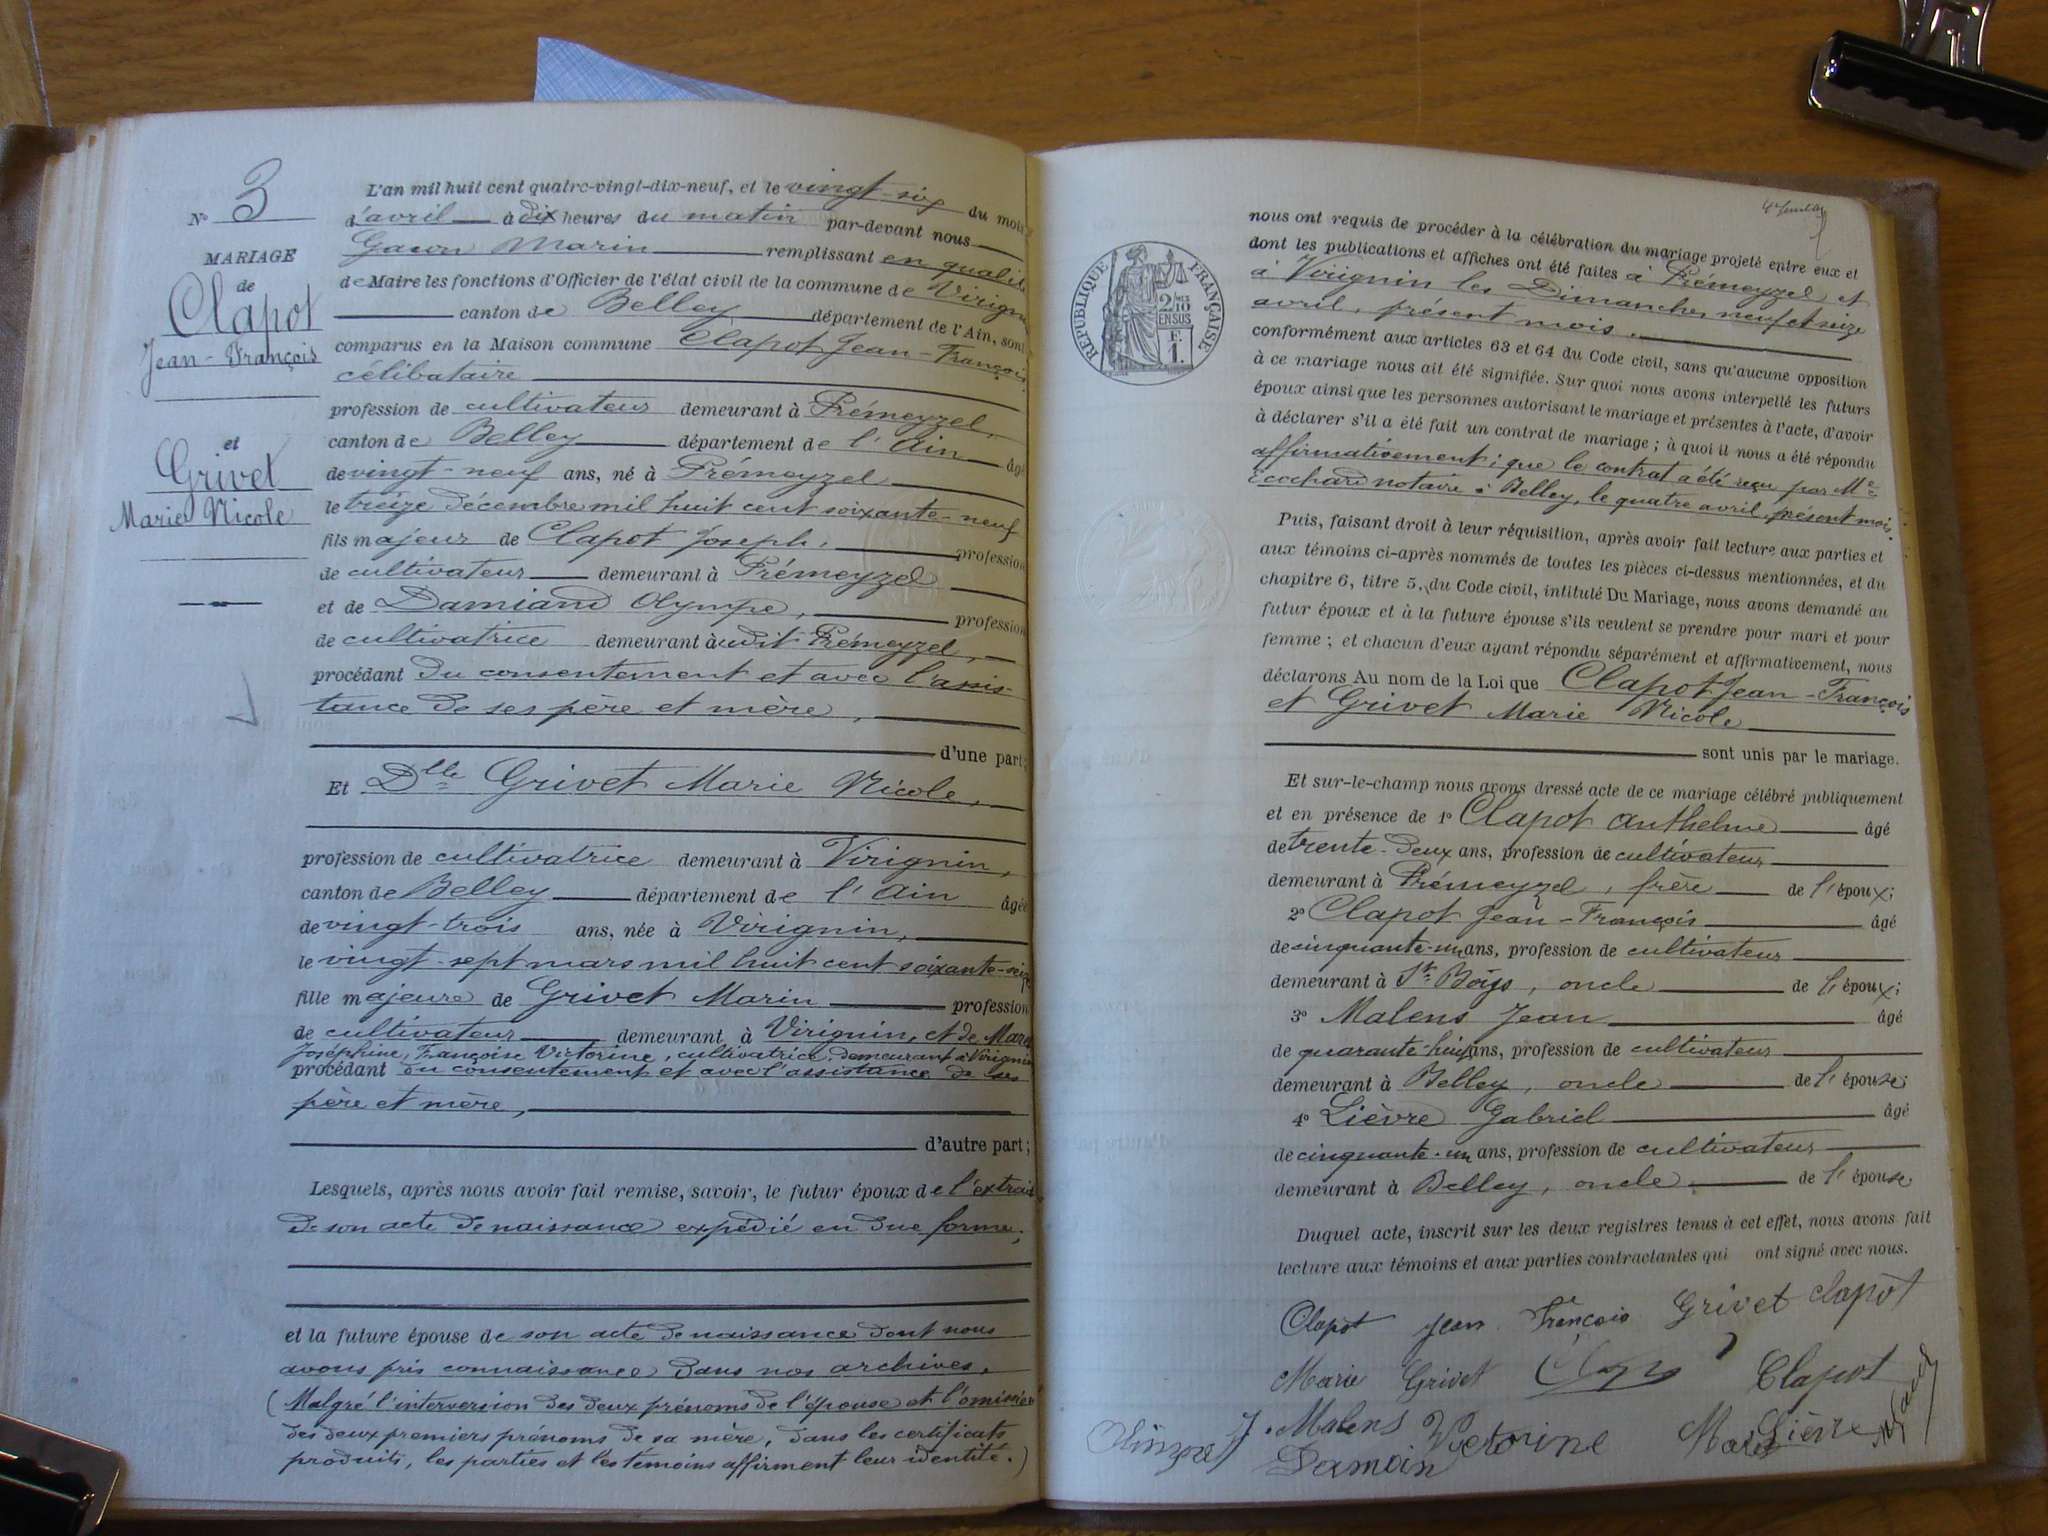 N° 3
MARIAGE
de
Clapot
Jean-François
et
Grivet
Marie Nicole
L'an mil huit cent quatre-vingt-dix-neuf, et le vingt-six du mois
d'avril à dix heures du matin par-devant nous
Gacon Marin remplissant en qualité
de Maire les fonctions d'Officier de l'état civil de la commune de Virignin
canton de Belley département de l'Ain, sont
comparus en la Maison commune Clapot Jean-François
célibataire
profession de cultivateur demeurant à Prémeyzel,
canton de Belley département de l'Ain âgé
de vingt-neuf ans, né à Prémeyzel
le treize décembre mil huit cent soixante-neuf
fils majeur de Clapot Joseph, profession
de cultivateur demeurant à Prémeyzel
et de Damiand Olympe, profession
de cultivatrice demeurant à udit Prémeyzel,
procédant du consentement et avec l'assis-
tance de ses père et mère,
d'une part;
Et Dlle Grivet Marie Nicole,
profession de cultivatrice demeurant à Virignin,
canton de Belley département de l'Ain âgée
de vingt-trois ans, née à Virignin,
le vingt-sept mars mil huit cent soixante-seize
fille majeure de Grivet Marin profession
de cultivateur demeurant à Virignin, et de Maret
Joséphine, Françoise Victorine, cultivatrice, demeurant à Virignin
procédant du consentement et avec l'assistance de ses
père et mère,
d'autre part;
Lesquels, après nous avoir fait remise, savoir, le futur époux de l'extrait
de son acte de naissance expédié en due forme;
et la future épouse de son acte de naissance dont nous
avons pris connaissance dans nos archives.
(Malgré l'interversion des deux prénoms de l'épouse et l'omission
des deux premiers prénoms de sa mère, dans les certificats
produits, les parties et les témoins affirment leur identité.)
RÉPUBLIQUE FRANÇAISE
2/10 MES
EN SUS
F.
1.
nous ont requis de procéder à la célébration du mariage projeté entre eux et
dont les publications et affiches ont été faites à Prémeyzel et
à Virignin les Dimanches neuf et seize
avril, présent mois.
conformément aux articles 63 et 64 du Code civil, sans qu'aucune opposition
à ce mariage nous ait été signifiée. Sur quoi nous avons interpellé les futurs
époux ainsi que les personnes autorisant le mariage et présentes à l'acte, d'avoir
à déclarer s'il a été fait un contrat de mariage; à quoi il nous a été répondu
affirmativement; que le contrat a été reçu par Me
Ecochard notaire à Belley, le quatre avril, présent mois.
Puis, faisant droit à leur réquisition, après avoir fait lecture aux parties et
aux témoins ci-après nommés de toutes les pièces ci-dessus mentionnées, et du
chapitre 6, titre 5, du Code civil, intitulé Du Mariage, nous avons demandé au
futur époux et à la future épouse s'ils veulent se prendre pour mari et pour
femme; et chacun d'eux ayant répondu séparément et affirmativement, nous
déclarons Au nom de la Loi que Clapot Jean-François
et Grivet Marie Nicole
sont unis par le mariage.
Et sur-le-champ nous avons dressé acte de ce mariage célébré publiquement
et en présence de 1° Clapot Anthelme âgé
de trente-deux ans, profession de cultivateur
demeurant à Prémeyzel, frère de l'époux;
2° Clapot Jean-François âgé
de cinquante-un ans, profession de cultivateur
demeurant à St Boys, oncle de l'époux;
3° Malens Jean âgé
de quarante-huit ans, profession de cultivateur
demeurant à Belley, oncle de l'épouse;
4° Lièvre Gabriel âgé
de cinquante-un ans, profession de cultivateur
demeurant à Belley, oncle de l'épouse
Duquel acte, inscrit sur les deux registres tenus à cet effet, nous avons fait
lecture aux témoins et aux parties contractantes qui ont signé avec nous.
Clapot Jean François Grivet Clapot
Marie Grivet Clapot
J. Malens Victorine Maret Lièvre